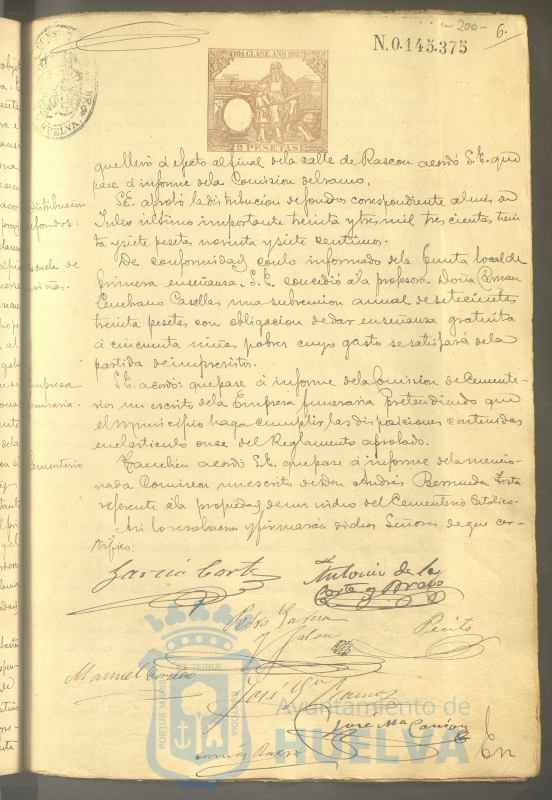 200 -
6.
N.0.145.375
10ª CLASE. AÑO 1887
2 PESETAS
HUELVA
que llevó á efecto al final de la calle de Rascon acordó S.E. que
pase á informe de la Comision del ramo.
Distribucion
fondos.
S.E. aprobó la distribucion de fondos correspondiente al mes de
Julio último importante treinta y tres mil trescientas trein
ta y siete pesetas noventa y siete centimos.
escuela de
niñas.
De conformidad con lo informado de la Junta local de
primera enseñanza. S.E. concedió á la profesora Doña Carmen
Casellas una subvencion anual de setecientas
treinta pesetas con obligacion de dar enseñanza gratuita
á cincuenta niñas pobres cuyo gasto se satisfará de la
partida de imprevistos.
Empresa
funeraria.
S.E. acordó que pase á informe de la Comision de Cemente-
rios un escrito de la Empresa funeraria pretendiendo que
el Municipio haga cumplir las disposiciones contenidas
en el articulo once del Reglamento aprobado.
Cementerio
Tambien acordó S.E. que pase á informe de la mencio-
nada Comision un escrito de Don Andrés Bermudez
referente á la propiedad de un nicho del Cementerio Católico.
Asi lo resolvieron y firmarán dichos Señores de que cer-
tifico:
Garcia Corte
Antonio de la
Corte y Bravo
Pedro Garcia
y Jalon
Manuel
José Gª Ramos
José Mª
PORTUS MARIS
ET TERRÆ
CUSTODIA
Ayuntamiento de
HUELVA
En